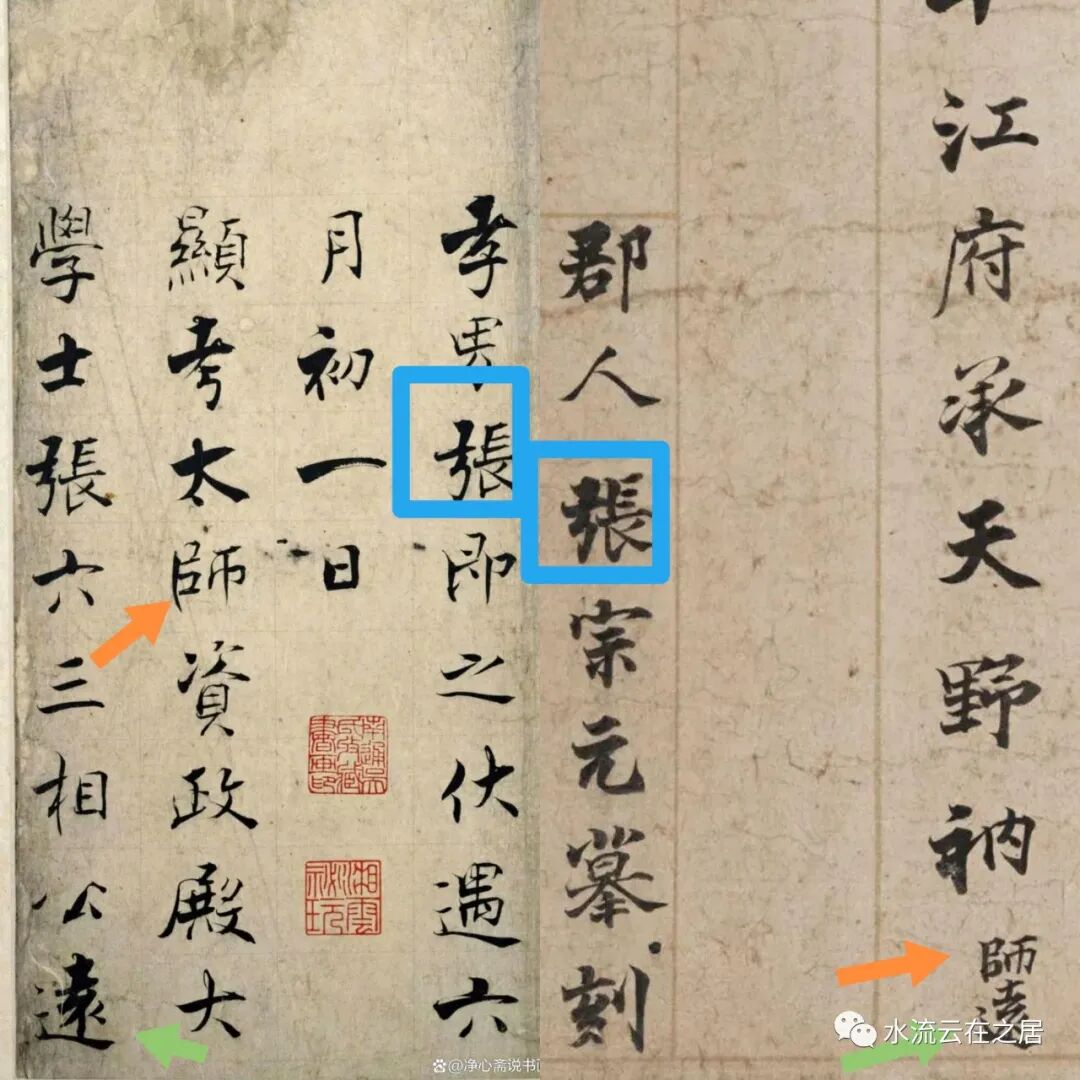 孝男張即之伏遇六
月初一日
顯考太師資政殿大
學士張六三相公遠
湘雲秘玩
江府承天野衲師遠
郡人張宗元摹刻
@净心斋说书
水流云在之居